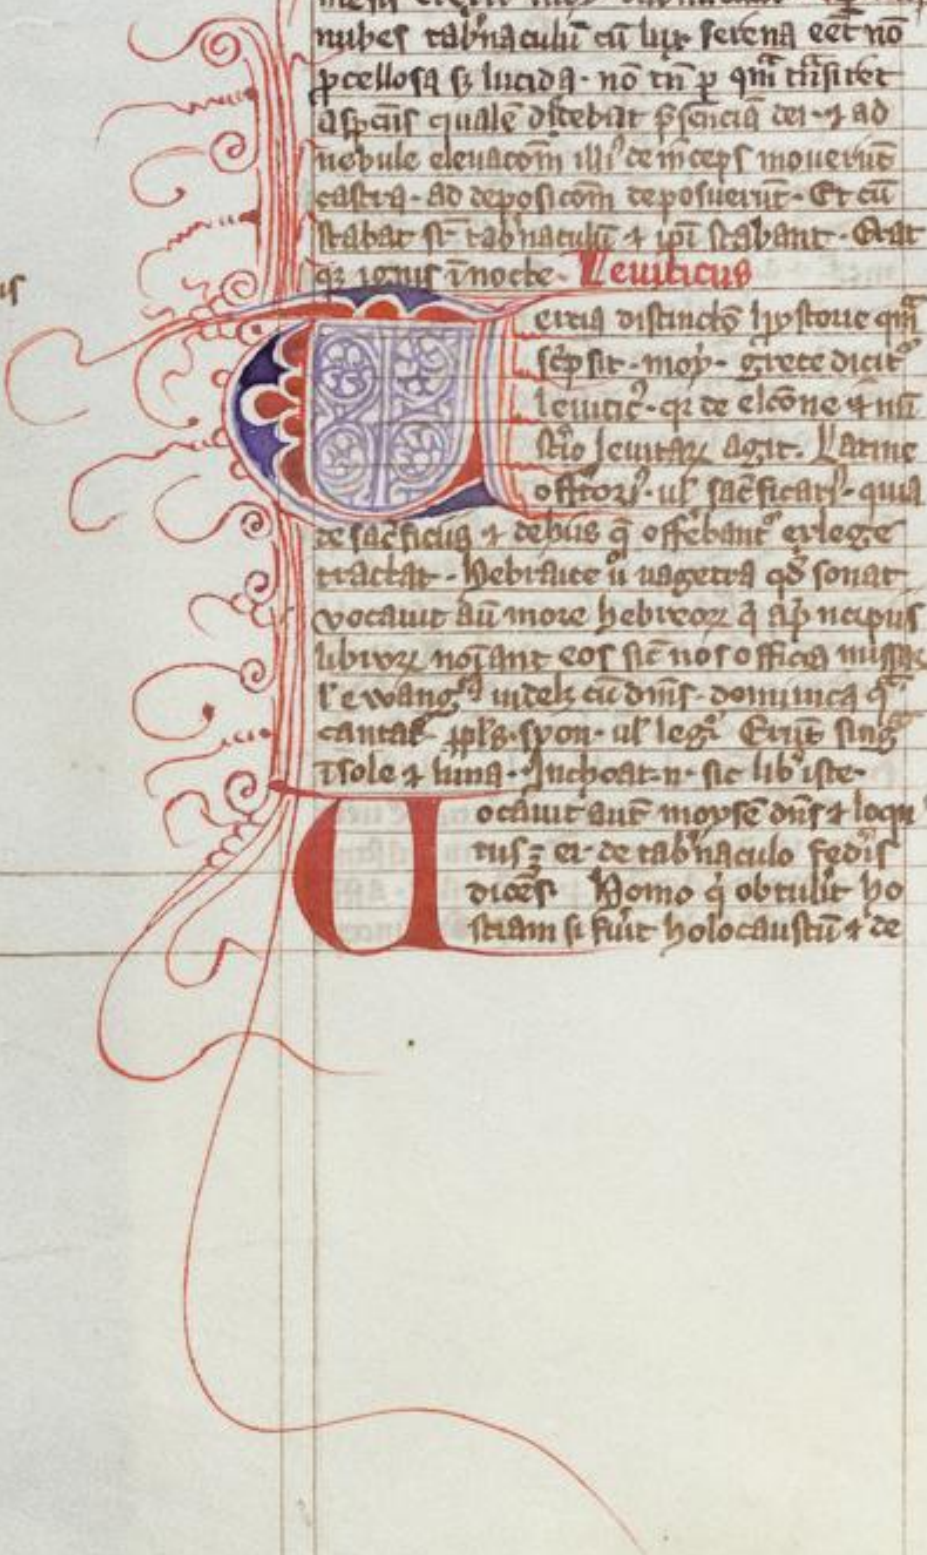 nubes tab'naculū cū lux serena eēt nō
ꝓcellosa sꝫ lucida · nō tn̄ ꝑ qm̄ tn̄siret
aspcūs qualē dicebāt p̄senciā dei · ⁊ ad
nebule eleuacōm illi' deinceps mouerūt
castra · ad deposicōm deposuerūt · Et cū
stabat sr̄ tab'naculū ⁊ ip̄i stabant · Erat
qꝫ ignis ī nocte · Leuiticus
Tercia distinctō hystorie qm̄
sc̄psit · moy · grece dicit'
leuitic' · qꝛ de elc̄one ⁊ mī
st'io leuitaꝝ agit · Latine
offitoꝝ · ul' sac̄ficaꝝ · quia
de sac̄ficiis ⁊ debus q̄ offēbant' ex lege
tractat · Hebraice ū uagetra qđ sonat
vocauit aū more hebreoꝝ q̄ a p̄ncipiis
libroꝝ noīant eos sic̄ nos officia missaꝝ
l' ewang' uidelꝫ cū dn̄s · dominica q̄
cantat' ppl's · syon · ul' legr̄ Erūt sing'
ī sole ⁊ luna · Inchoat · n · sic lib' iste ·
Uocauit aut̄ moysē dn̄s ⁊ loqu
tus ē ei de tab'naculo fed'is
dicēs Homo q' obtulit ho
stiam si fūit holocaustū ⁊ de